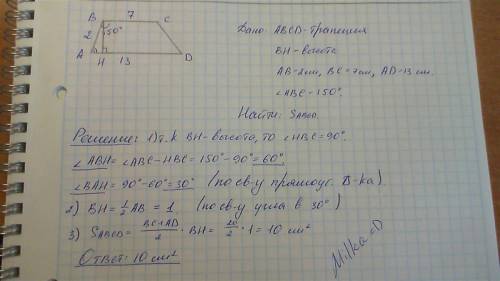 B 7 C
2 150°
A H 13 D
Дано: ABCD-трапеция
BH-высота
AB=2см, BC=7см, AD=13см.
∠ABC=150°.
Найти: SABCD.
Решение: 1) т.к BH-высота, то ∠HBC=90°.
∠ABH=∠ABC-HBC=150°-90°=60°.
∠BAH=90°-60°=30° (по св-у прямоуг. Δ-ка)
2) BH=1/2 AB = 1 (по св-у угла в 30°)
3) SABCD = BC+AD/2 · BH = 20/2 · 1 = 10 см²
Ответ: 10 см²
Milka=D